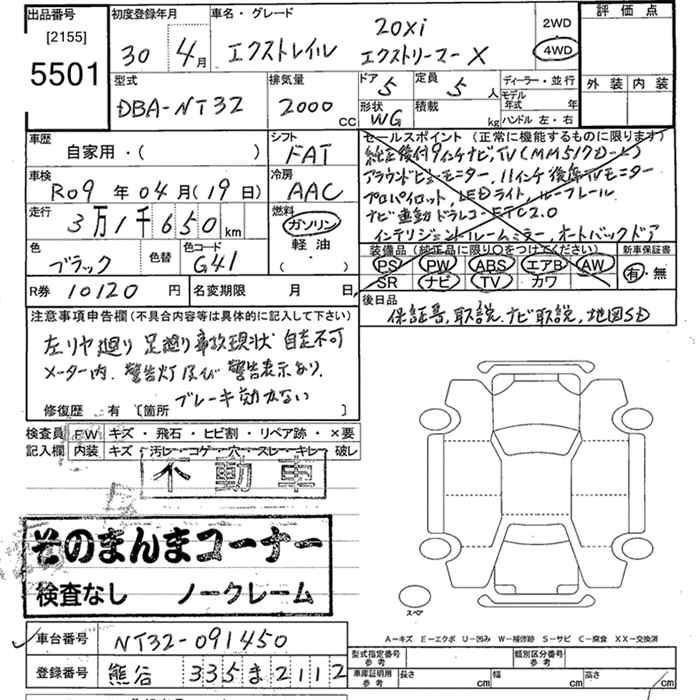 出品番号
[2155]
5501
初度登録年月
30年 4月
車名・グレード
エクストレイル 20xi エクストリーマーX
2WD
4WD
評価点
外装 内装
型式
DBA-NT32
排気量
2000 CC
ドア 5
定員 5 人
形状 WG
積載 kg
ディーラー・並行
モデル年式 年
ハンドル 左・右
車歴
自家用・( )
シフト
FAT
車検
R09年 04月(19日)
冷房
AAC
走行
3万1千650km
燃料
ガソリン
軽油
( ・ )
色
ブラック
色替
色コード
G41
R券 10120 円
名変期限 月 日
セールスポイント (正常に機能するものに限ります)
純正後付9インチナビ,TV(MM517D-L)
アラウンドビューモニター, 11インチ後席TVモニター
プロパイロット, LEDライト, ルーフレール
ナビ連動ドラレコ-ETC2.0
インテリジェントルームミラー, オートバックドア
装備品 (純正品に限り○をつけてください)
新車保証書
PS PW ABS エアB AW
SR ナビ TV カワ
有・無
後日品
保証書, 取説, ナビ取説, 地図SD
注意事項申告欄 (不具合内容等は具体的に記入して下さい)
左リヤ廻り 足廻り事故現状 自走不可
メーター内, 警告灯及び 警告表示あり,
ブレーキ効かない
修復歴 有 [箇所 ]
検査員 FW キズ・飛石・ヒビ割・リペア跡・×要
記入欄 内装 キズ・汚レ・コゲ・穴・スレ・キレ・破レ
不動車
そのまんまコーナー
検査なし ノークレーム
車台番号 NT32-091450
登録番号 熊谷 335ま2112
スペア
A-キズ E-エクボ U-凹み W-補修跡 S-サビ C-腐食 XX-交換済
型式指定番号 参考
類別区分番号 参考
車庫証明用 参考 長さ cm 幅 cm 高さ cm